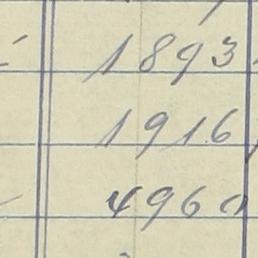 1893
1916
4960